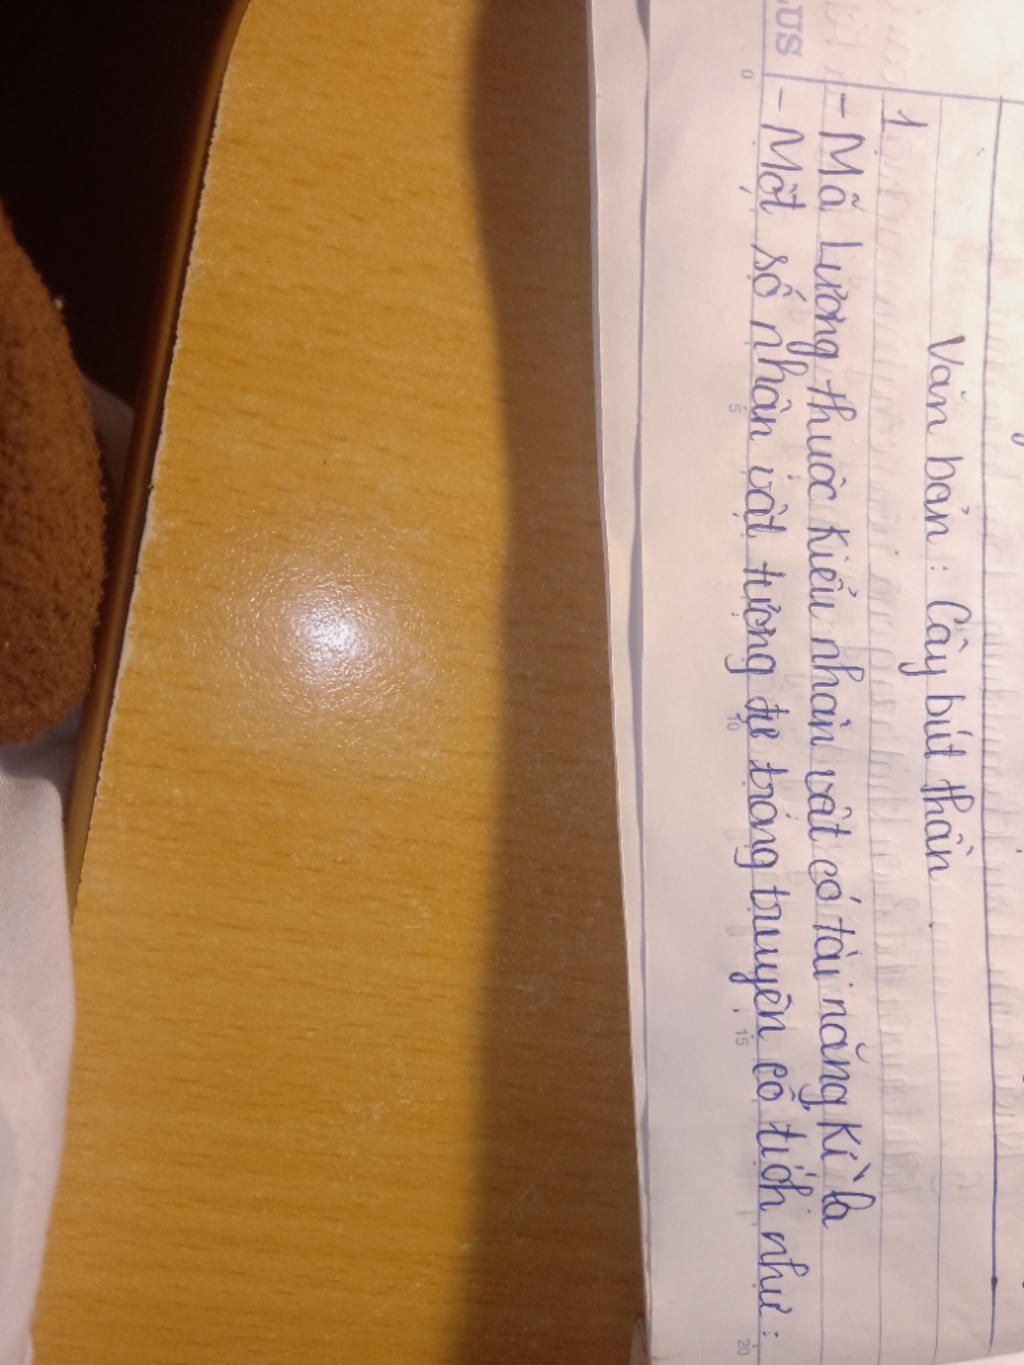 Văn bản : Cây bút thần.
1.
- Mã Lương thuộc kiểu nhân vật có tài năng kì lạ
- Một số nhân vật tương tự trong truyện cổ tích như :
0
5
10
15
20